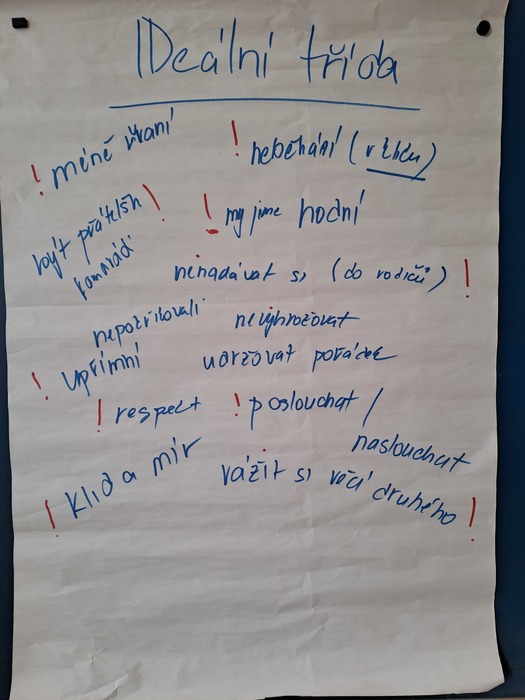 IDeální třída
! méně řvaní
! neběhání (v tělcu)
být přátelšn !
kamarádi
! my jsme hodní
nenadávat si (do rodičů) !
nepoźřilovali
nevyhrožovat
! upřímní
udržovat pořádek
! respect
! poslouchat /
naslouchat
! Klid a mír
vážit si věcí druhého !